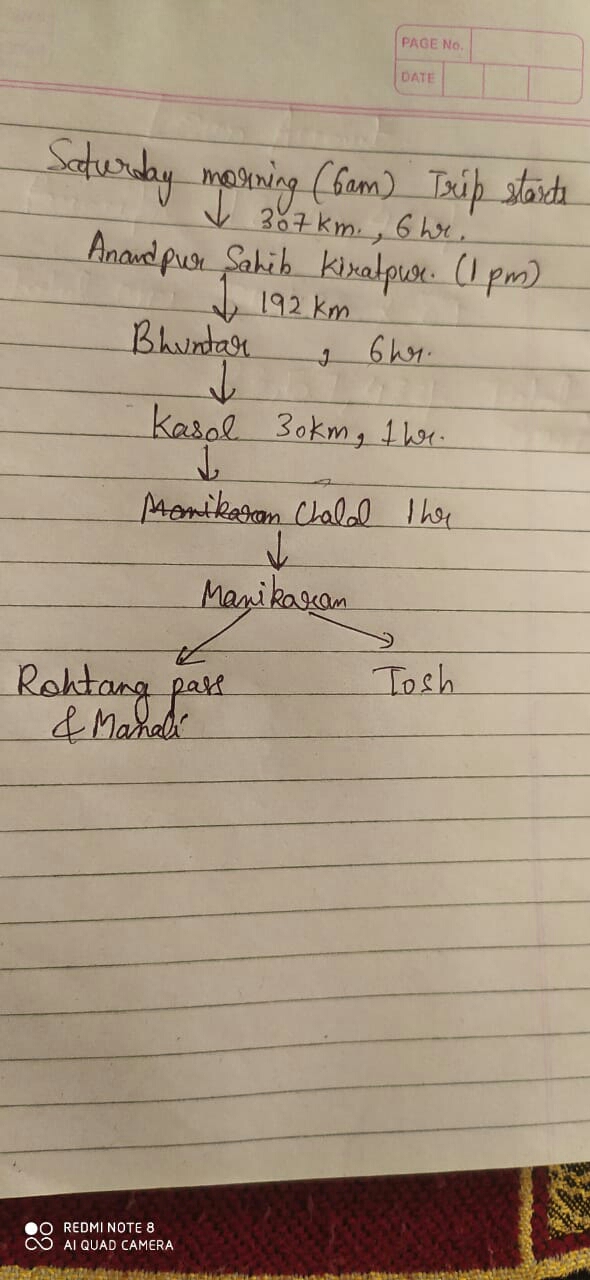 PAGE No.
DATE
Saturday morning (6am) Trip starts
↓ 307 km., 6 hr.
Anandpur Sahib Kiratpur. (1 pm)
↓ 192 km
Bhuntar , 6hr.
↓
Kasol 30km, 1 hr.
↓
Manikaran Chalal 1 hr
↓
Manikaran
Rohtang pass Tosh
& Manali
REDMI NOTE 8
AI QUAD CAMERA